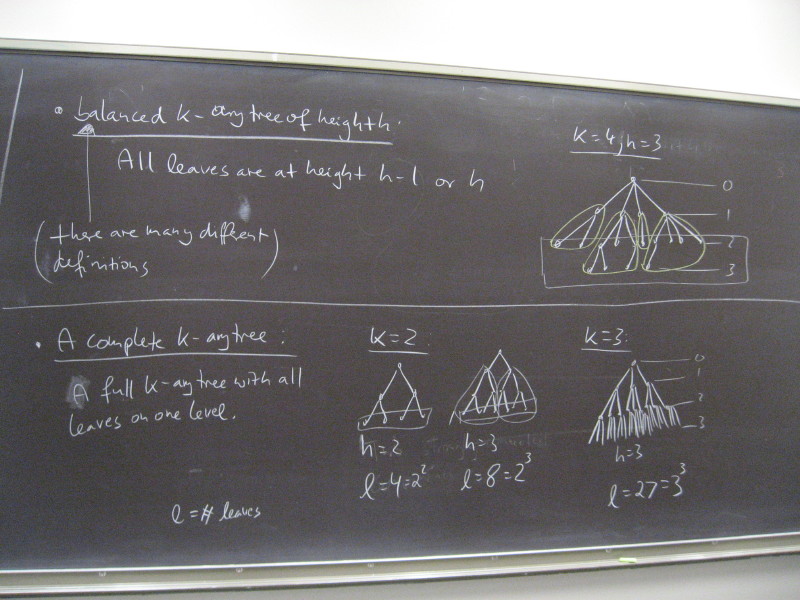 • balanced k-ary tree of height h.
All leaves are at height h-1 or h
(there are many different
definitions)
K=4, h=3
0
1
2
3
• A complete k-ary tree:
A full k-ary tree with all
leaves on one level.
l = # leaves
K=2:
h=2
l=4=2²
h=3
l=8=2³
K=3:
0
1
2
3
h=3
l=27=3³